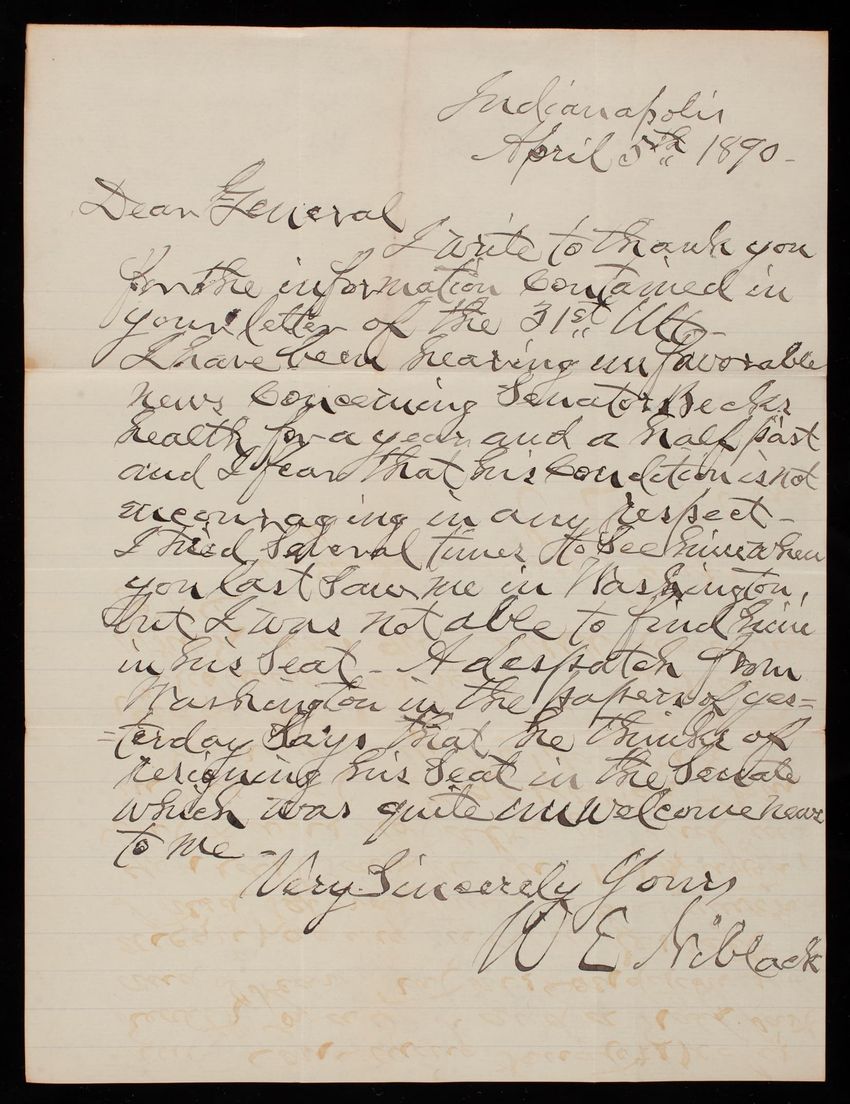 Indianapolis
April 5th 1890-
Dear General
I write to thank you
for the information contained in
your letter of the 31st Ult-
I have been hearing unfavorable
news concerning Senator Becks
health for a year and a half past
and I fear that his condition is not
encouraging in any respect-
I tried several times to see him when
you last saw me in Washington,
but I was not able to find him
in his seat- A despatch from
Washington in the papers of yes=
=terday says that he thinks of
resigning his seat in the Senate
which was quite unwelcome news
to me-
Very Sincerely Yours
W E Niblack